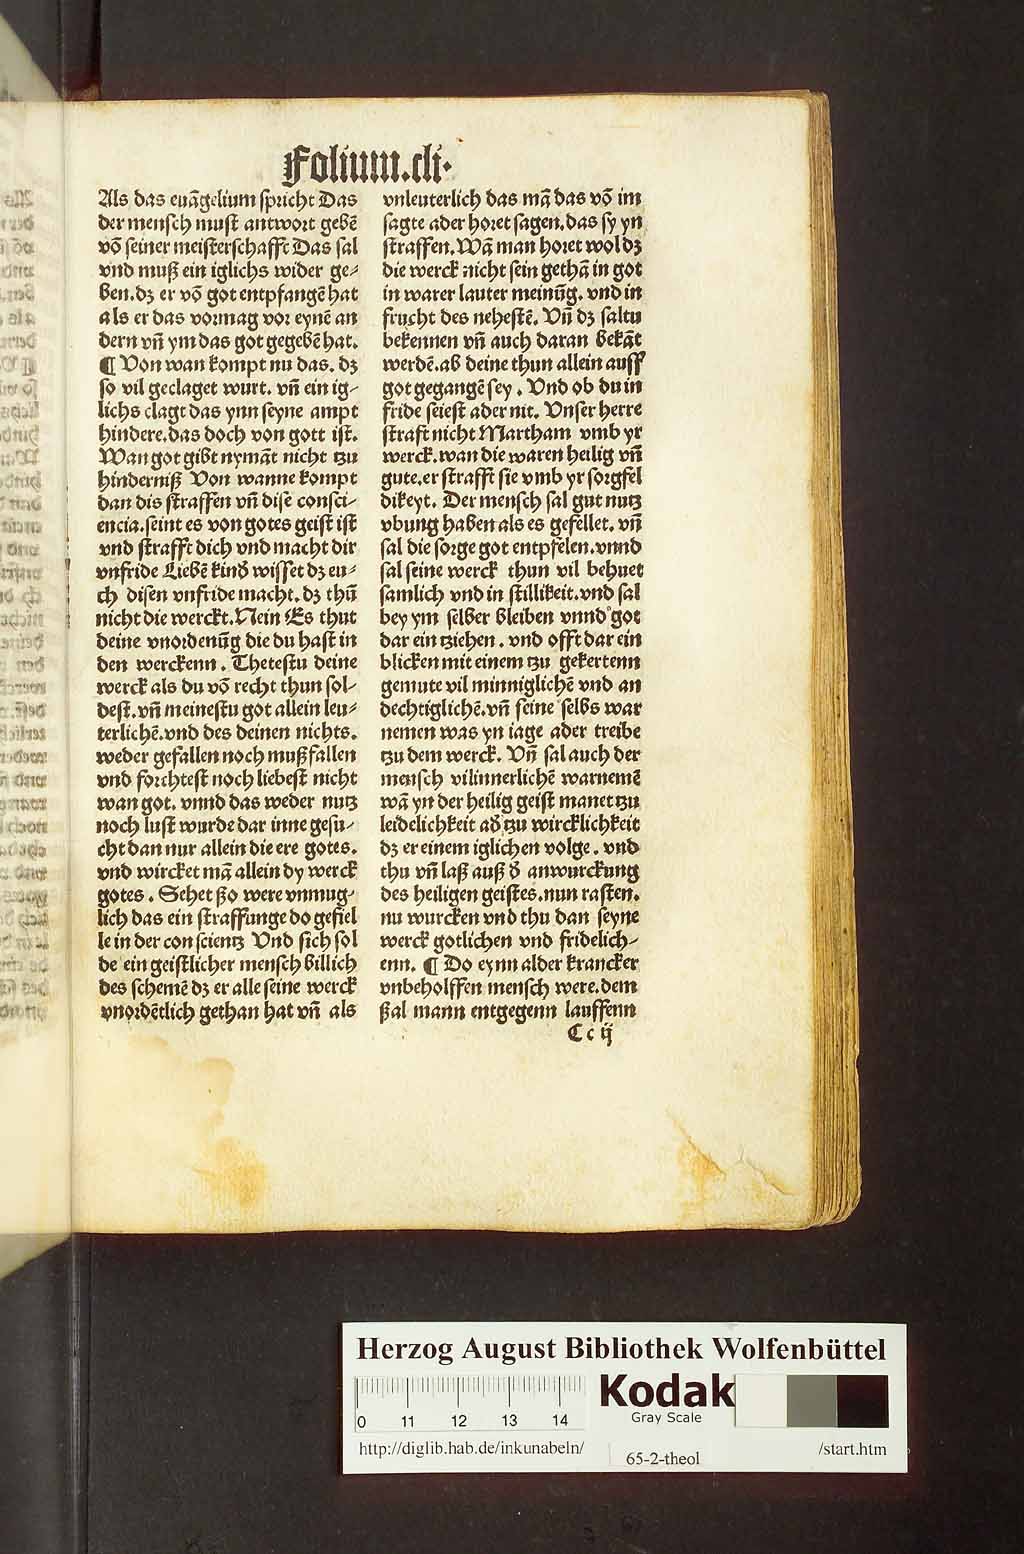 Folium.cli.
Als das euāgelium spricht Das
der mensch must antwort gebē
vō seiner meisterschafft Das sal
vnd muß ein iglichs wider ge⸗
ben.dz er vō got entpfangē hat
als er das vormag vor eynē an
dern vn̄ ym das got gegebē hat.
¶ Von wan kompt nu das. dz
so vil geclaget wurt. vn̄ ein ig⸗
lichs clagt das ynn seyne ampt
hindere.das doch von gott ist.
Wan got gibt nymāt nicht tzu
hinderniß Von wanne kompt
dan dis straffen vn̄ dise consci⸗
encia.seint es von gotes geist ist
vnd strafft dich vnd macht dir
vnfride Liebē kind wisset dz eu⸗
ch disen vnfride macht. dz thū
nicht die werckt.Nein Es thut
deine vnordenūg die du hast in
den werckenn. Thetestu deine
werck als du vō recht thun sol⸗
dest.vn̄ meinestu got allein leu⸗
terlichē.vnd des deinen nichts.
weder gefallen noch mußfallen
vnd forchtest noch liebest nicht
wan got. vnnd das weder nutz
noch lust wurde dar inne gesu⸗
cht dan nur allein die ere gotes.
vnd wircket mā allein dy werck
gotes. Sehet ßo were vnmug⸗
lich das ein straffunge do gefiel
le in der conscientz Vnd sich sol
de ein geistlicher mensch billich
des schemē dz er alle seine werck
vnordētlich gethan hat vn̄ als
vnleuterlich das mā das vō im
sagte ader horet sagen.das sy yn
straffen. Wā man horet wol dz
die werck nicht sein gethā in got
in warer lauter meinūg. vnd in
frucht des nehestē. Vn̄ dz saltu
bekennen vn̄ auch daran bekāt
werdē.ab deine thun allein auff
got gegangē sey. Vnd ob du in
fride seiest ader nit. Vnser herre
straft nicht Martham vmb yr
werck.wan die waren heilig vn̄
gute.er strafft sie vmb yr sorgfel
dikeyt. Der mensch sal gut nutz
vbung haben als es gefellet. vn̄
sal die sorge got entpfelen.vnnd
sal seine werck thun vil behuet
samlich vnd in stillikeit.vnd sal
bey ym selber bleiben vnnd got
dar ein tziehen. vnd offt dar ein
blicken mit einem tzu gekertenn
gemute vil minniglichē vnd an
dechtiglichē.vn̄ seine selbs war
nemen was yn iage ader treibe
tzu dem werck. Vn̄ sal auch der
mensch vilinnerlichē warnemē
wā yn der heilig geist manet tzu
leidelichkeit ad̕ tzu wircklichkeit
dz er einem iglichen volge. vnd
thu vn̄ laß auß d̕ anwurckung
des heiligen geistes.nun rasten.
nu wurcken vnd thu dan seyne
werck gotlichen vnd fridelich⸗
enn. ¶ Do eynn alder krancker
vnbeholffen mensch were.dem
ßal mann entgegenn lauffenn
Cc ij
Herzog August Bibliothek Wolfenbüttel
0 11 12 13 14
Kodak
Gray Scale
http://diglib.hab.de/inkunabeln/
65-2-theol
/start.htm